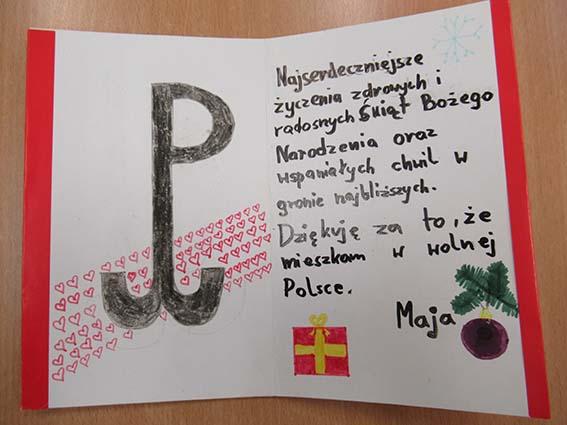 Najserdeczniejsze
życzenia zdrowych i
radosnych Świąt Bożego
Narodzenia oraz
wspaniałych chwil w
gronie najbliższych.
Dziękuję za to, że
mieszkam w wolnej
Polsce.
Maja